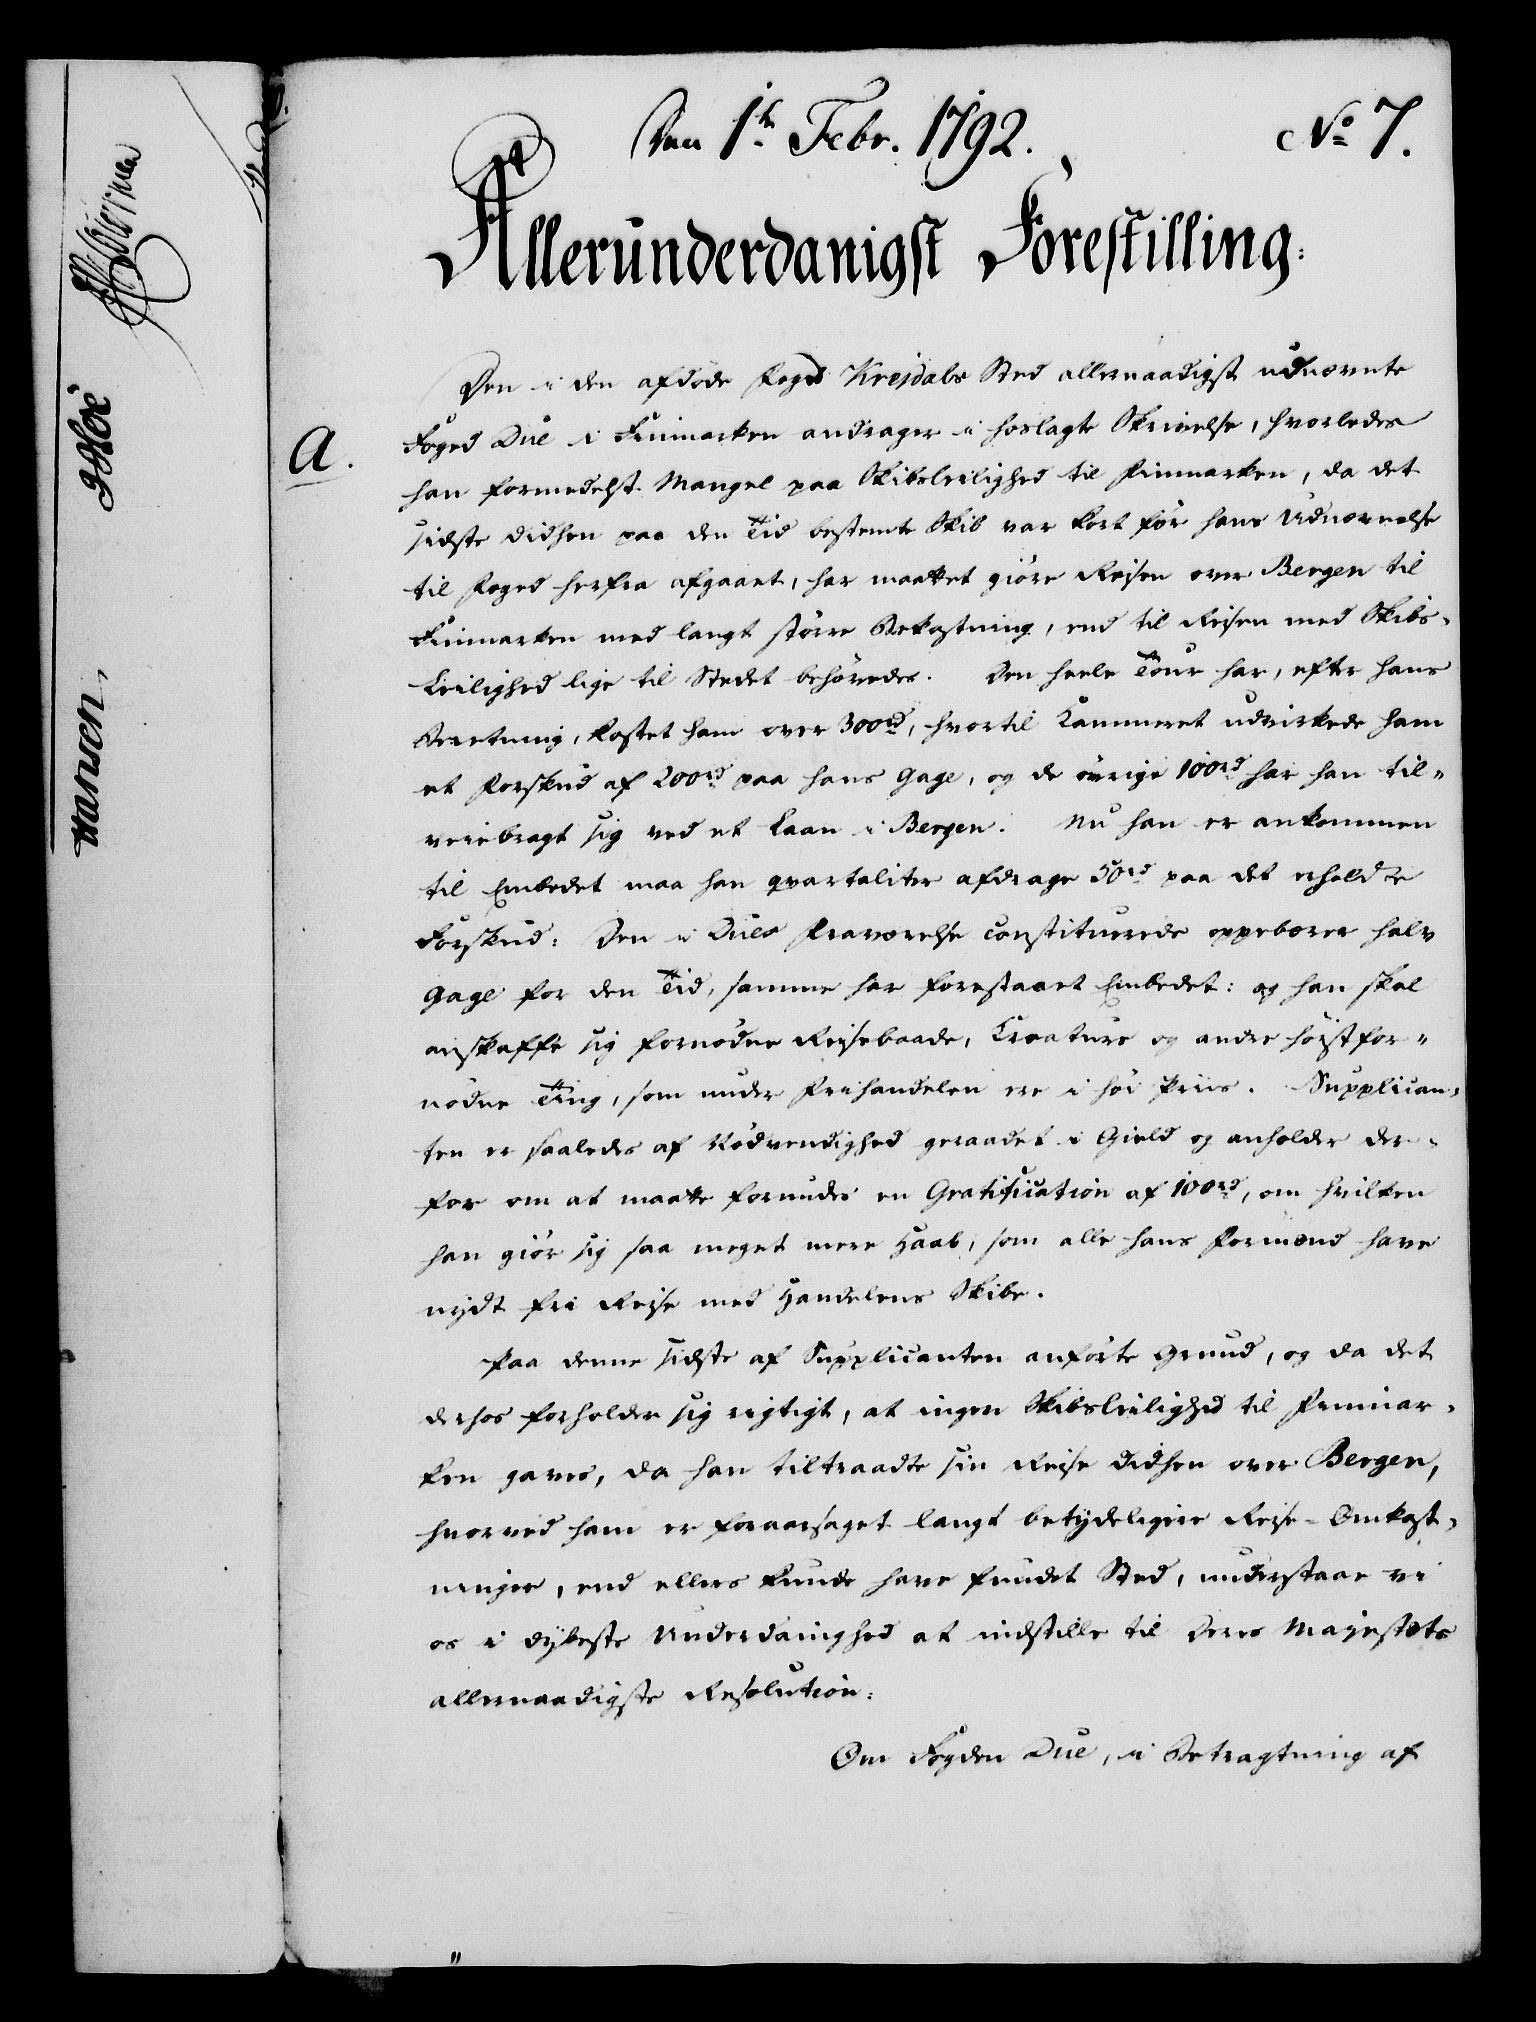 Den 1te Febr. 1792.
No 7.
Allerunderdanigst Forestilling:
A.
Den i den afdøde Foged Krejdals Sted allernaadigst udnævnte
Foged Due i Finmarken andrager i hoslagte Skrivelse, hvorledes
han formedelst Mangel paa Skibsleilighed til Finmarken, da det
sidste didhen paa den Tid bestemte Skib var kort før hans Udnævnelse
til Foged herfra afgaaet, har maattet giöre Reisen over Bergen til
Finmarken med langt större Bekostning, end til Reisen med Skibs-
Leilighed lige til Stedet behövedes. Den heele Tour har, efter hans
Beretning, kostet ham over 300rd, hvortil Kammeret udvirkede ham
et Forskud af 200rd paa hans Gage, og de övrige 100rd har han til-
veiebragt sig ved et Laan i Bergen. Nu han er ankommen
til Embedet maa han qvartaliter afdrage 50rd paa det erholdte
Forskud: Den i Dues Fraværelse constituerede oppebærer halv
Gage for den Tid, samme har forestaaet Embedet: og han skal
anskaffe sig fornödne Reisebaade, Creature og andre höistfor-
nödne Ting, som under Frihandelen ere i höi Priis. Supplican-
ten er saaledes af Nödvendighed geraadet i Gield og anholder der-
for om at maatte forundes en Gratification af 100rd, om hvilken
han giör sig saa meget mere Haab, som alle hans Formænd have
nydt fri Reise med Handelens Skibe.
Paa denne sidste af Supplicanten anförte Grund, og da det
derhos forholder sig rigtigt, at ingen Skibsleilighed til Finmar-
ken gaves, da han tiltraadte sin Reise didhen over Bergen,
hvorved ham er foraarsaget langt betydeligere Reise-Omkost-
ninger, end ellers kunde have fundet Sted, understaae vi
os i dybeste Underdanighed at indstille til Deres Majestæts
allernaadigste Resolution:
Om Fogden Due, i Betragtning af
Hansen,